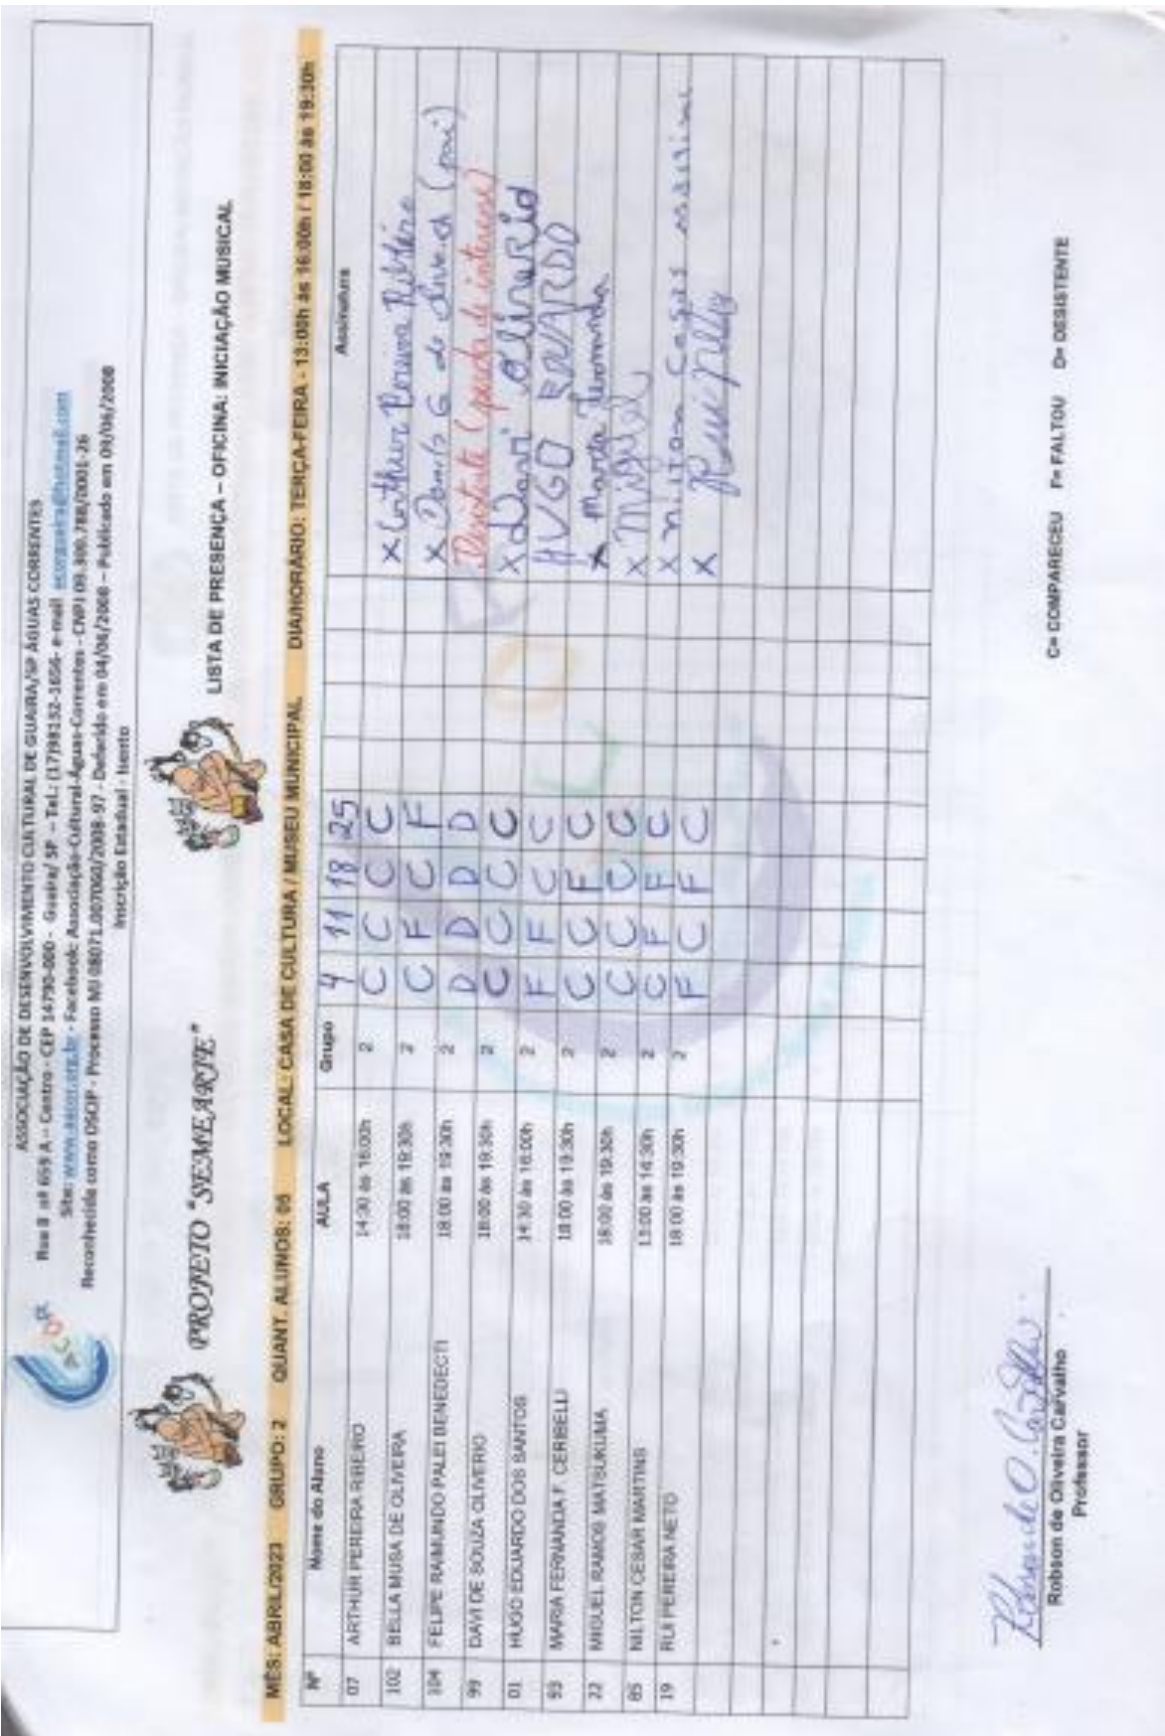 ASSOCIAÇÃO DE DESENVOLVIMENTO CULTURAL DE GUAIRA/SP ÁGUAS CORRENTES
Rua 8 nº 659 A – Centro - CEP 14790-000 - Guaíra/ SP – Tel.: (17)98132-1656- e-mail acorguaira@hotmail.com
Site: www.acorr.org.br - Facebook: Associação-Cultural-Águas-Correntes - CNPJ 09.300.788/0001-26
Reconhecida como OSCIP - Processo MJ 08071.007060/2008-97 - Deferido em 04/06/2008 – Publicado em 09/06/2008
Inscrição Estadual - Isento
PROJETO "SEMEARTE" LISTA DE PRESENÇA – OFICINA: INICIAÇÃO MUSICAL
MÊS: ABRIL/2023 GRUPO: 2 QUANT. ALUNOS: LOCAL: CASA DE CULTURA / MUSEU MUNICIPAL DIA/HORÁRIO: TERÇA-FEIRA - 13:00h às 16:00h / 18:00 às 19:30h
Nº Nome do Aluno AULA Grupo 4 11 18 25 Assinatura
07 ARTHUR PEREIRA RIBEIRO 14:30 às 16:00h 2 C C C C X Arthur Pereira Ribeiro
102 BELLA MUSA DE OLIVEIRA 18:00 às 19:30h 2 C F C F X G de (pai)
104 FELIPE RAIMUNDO PALEI BENEDECTI 18:00 às 19:30h 2 D D D D Desistente (perda de interesse)
99 DAVI DE SOUZA OLIVERIO 18:00 às 19:30h 2 C C C C X Davi Oliverio
01 HUGO EDUARDO DOS SANTOS 14:30 às 16:00h 2 F F C C HUGO EDUARDO
93 MARIA FERNANDA F. CERIBELLI 18:00 às 19:30h 2 C C F C X Maria Fernanda
22 MIGUEL RAMOS MATSUKUMA 18:00 às 19:30h 2 C C C C X Miguel
85 NILTON CESAR MARTINS 13:00 às 14:30h 2 C F F C X nilton Cesar
19 RUI PEREIRA NETO 18:00 às 19:30h 2 F C F C X Rui
Robson de Oliveira Carvalho
Professor
C= COMPARECEU F= FALTOU D= DESISTENTE